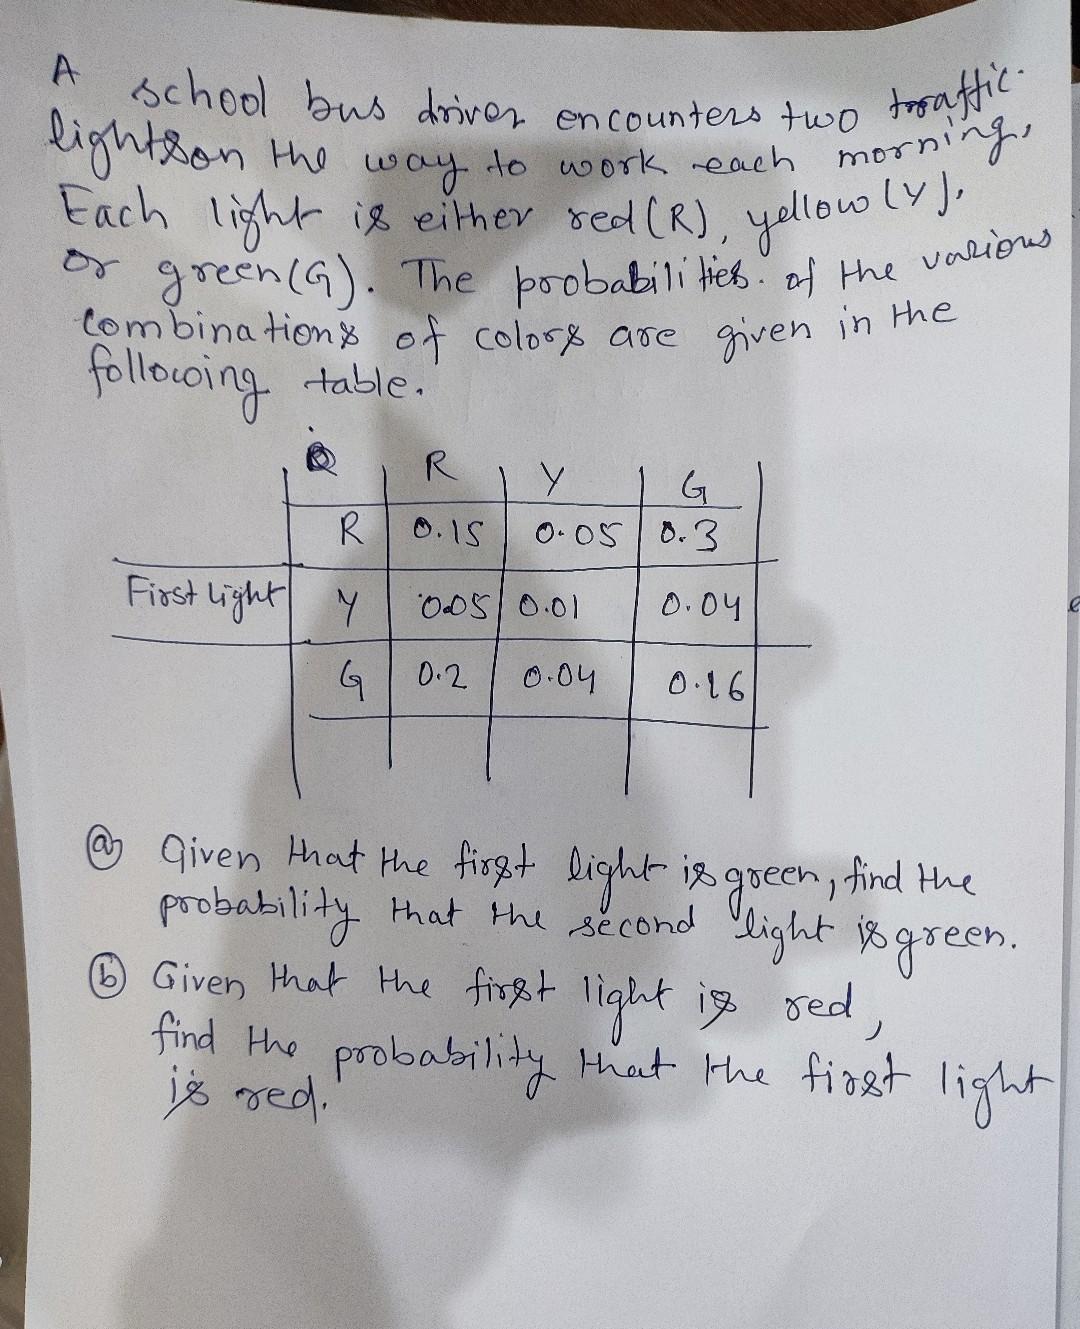 A school bus driver encounters two traffic
lights on the way to work each morning,
Each light is either red (R), yellow (Y),
or green (G). The probabilities. of the various
combinations of colors are given in the
following table.
R Y G
R 0.15 0.05 0.3
First Light Y 0.05 0.01 0.04
G 0.2 0.04 0.16
(a) Given that the first light is green, find the
probability that the second light is green.
(b) Given that the first light is red,
find the probability that the first light
is red.